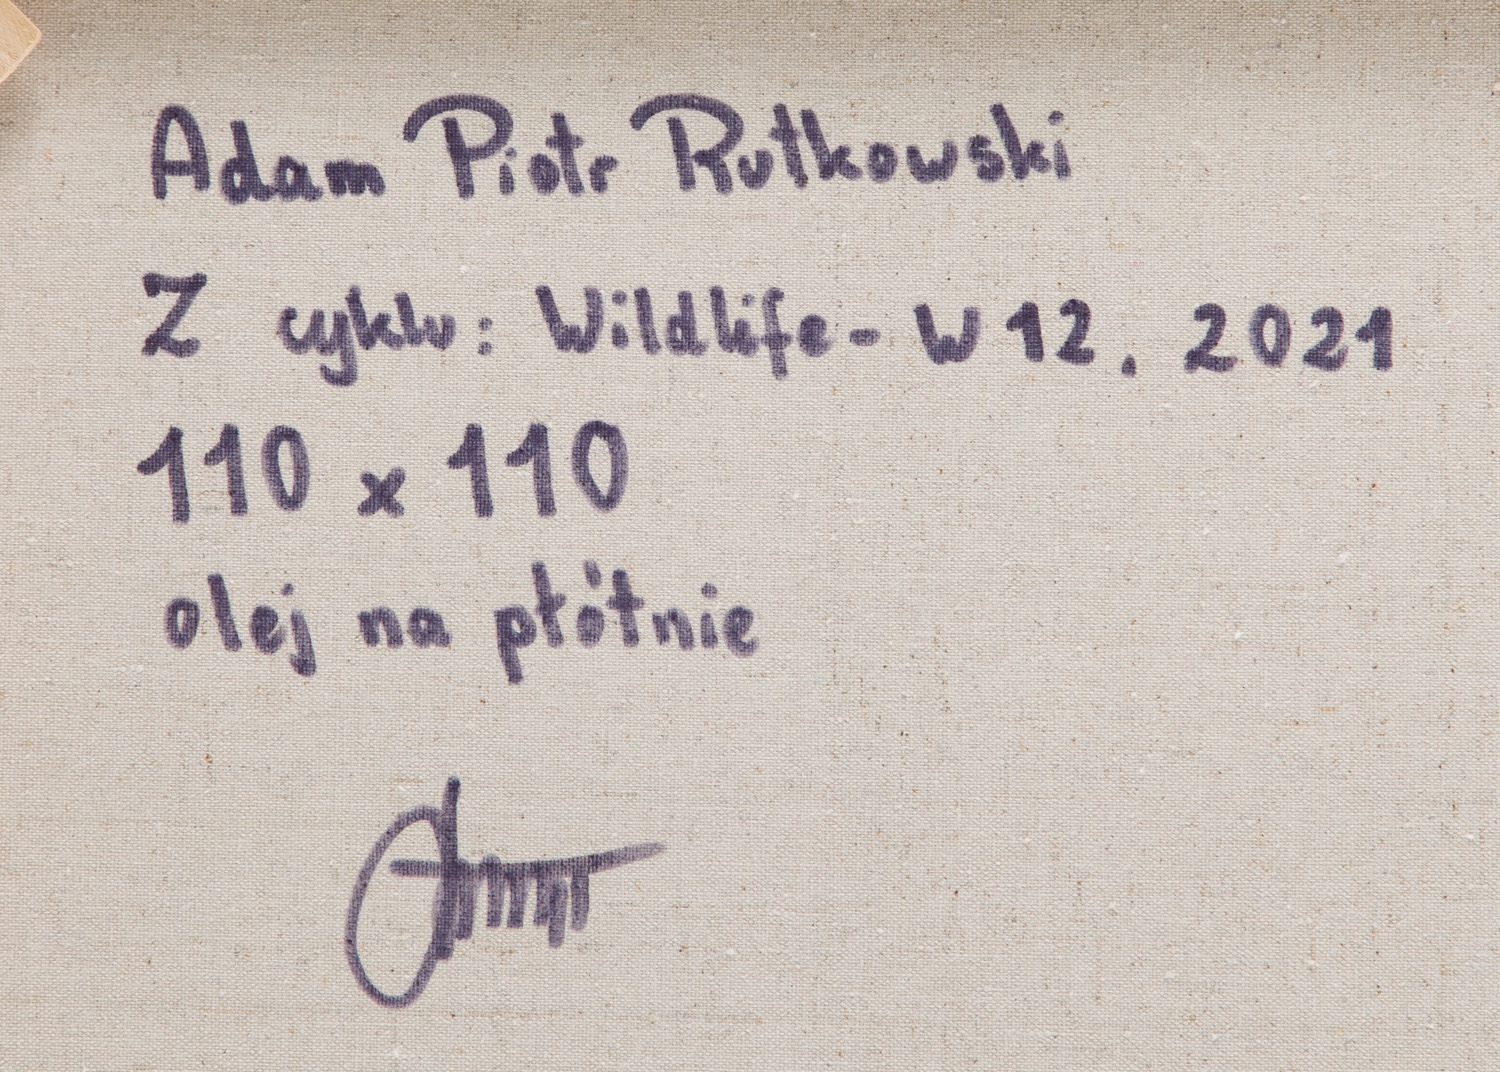 Adam Piotr Rutkowski
Z cyklu: Wildlife - W12. 2021
110 x 110
olej na płótnie